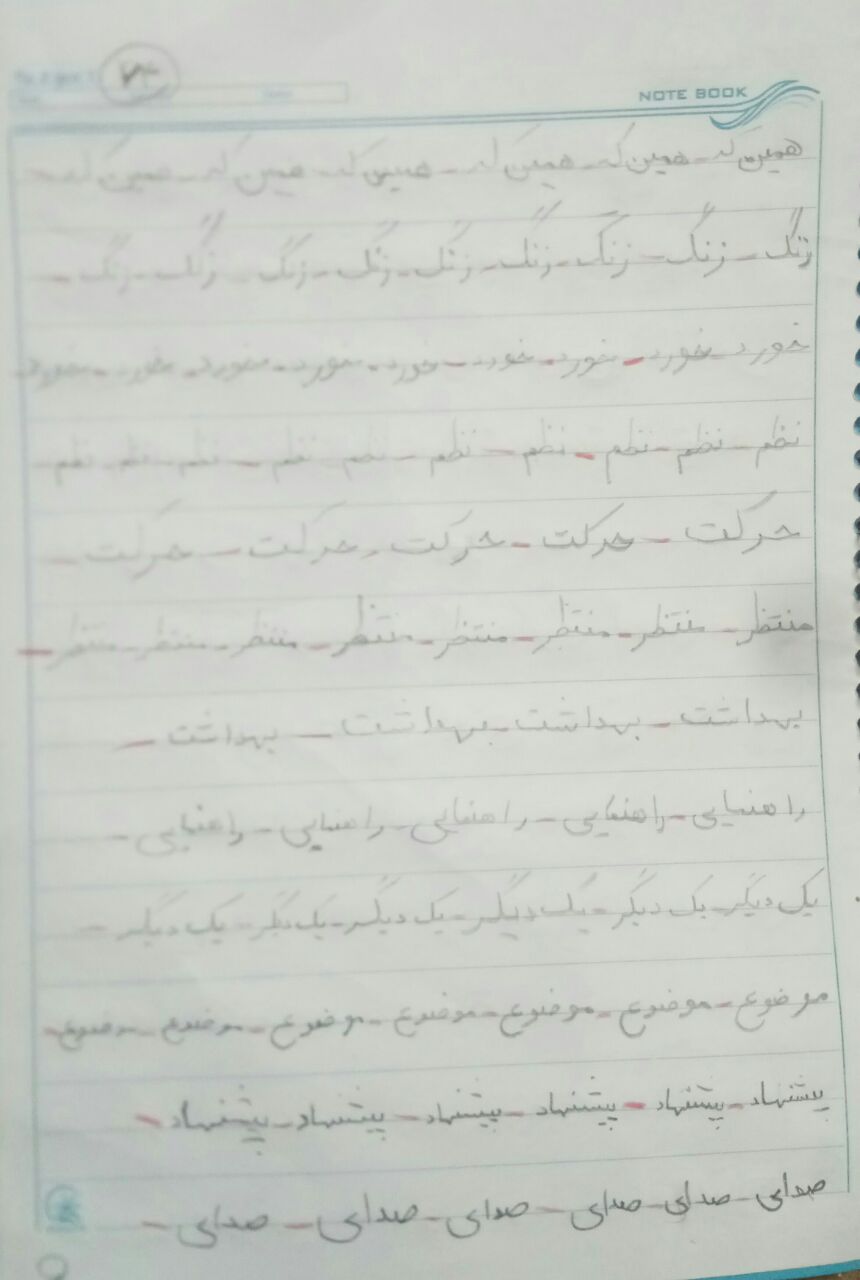 NOTE BOOK
همین که - همین که - همین که - همین که - همین که - همین که - همین که
زنگ - زنگ - زنگ - زنگ - زنگ - زنگ - زنگ - زنگ - زنگ -
خورد - خورد - خورد - خورد - خورد - خورد - خورد - خورد - خورد
نظم - نظم - نظم - نظم - نظم - نظم - نظم - نظم - نظم - نظم -
حرکت - حرکت - حرکت - حرکت - حرکت -
منتظر - منتظر - منتظر - منتظر - منتظر - منتظر - منتظر -
بهداشت - بهداشت - بهداشت - بهداشت -
راهنمایی - راهنمایی - راهنمایی - راهنمایی - راهنمایی -
یک دیگر - یک دیگر - یک دیگر - یک دیگر - یک دیگر - یک دیگر -
موضوع - موضوع - موضوع - موضوع - موضوع - موضوع - موضوع -
پیشنهاد - پیشنهاد - پیشنهاد - پیشنهاد - پیشنهاد - پیشنهاد -
صدای - صدای - صدای - صدای - صدای - صدای -